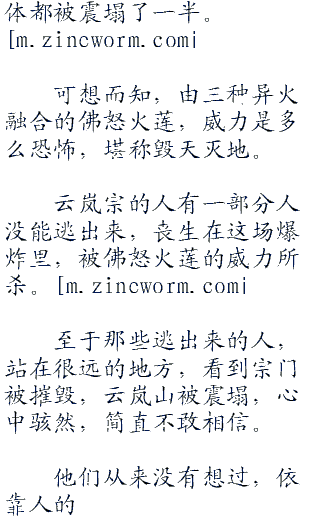 体都被震塌了一半。
[m.zincworm.com|
可想而知，由三种异火
融合的佛怒火莲，威力是多
么恐怖，堪称毁天灭地。
云岚宗的人有一部分人
没能逃出来，丧生在这场爆
炸里，被佛怒火莲的威力所
杀。[m.zincworm.com|
至于那些逃出来的人，
站在很远的地方，看到宗门
被摧毁，云岚山被震塌，心
中骇然，简直不敢相信。
他们从来没有想过，依
靠人的